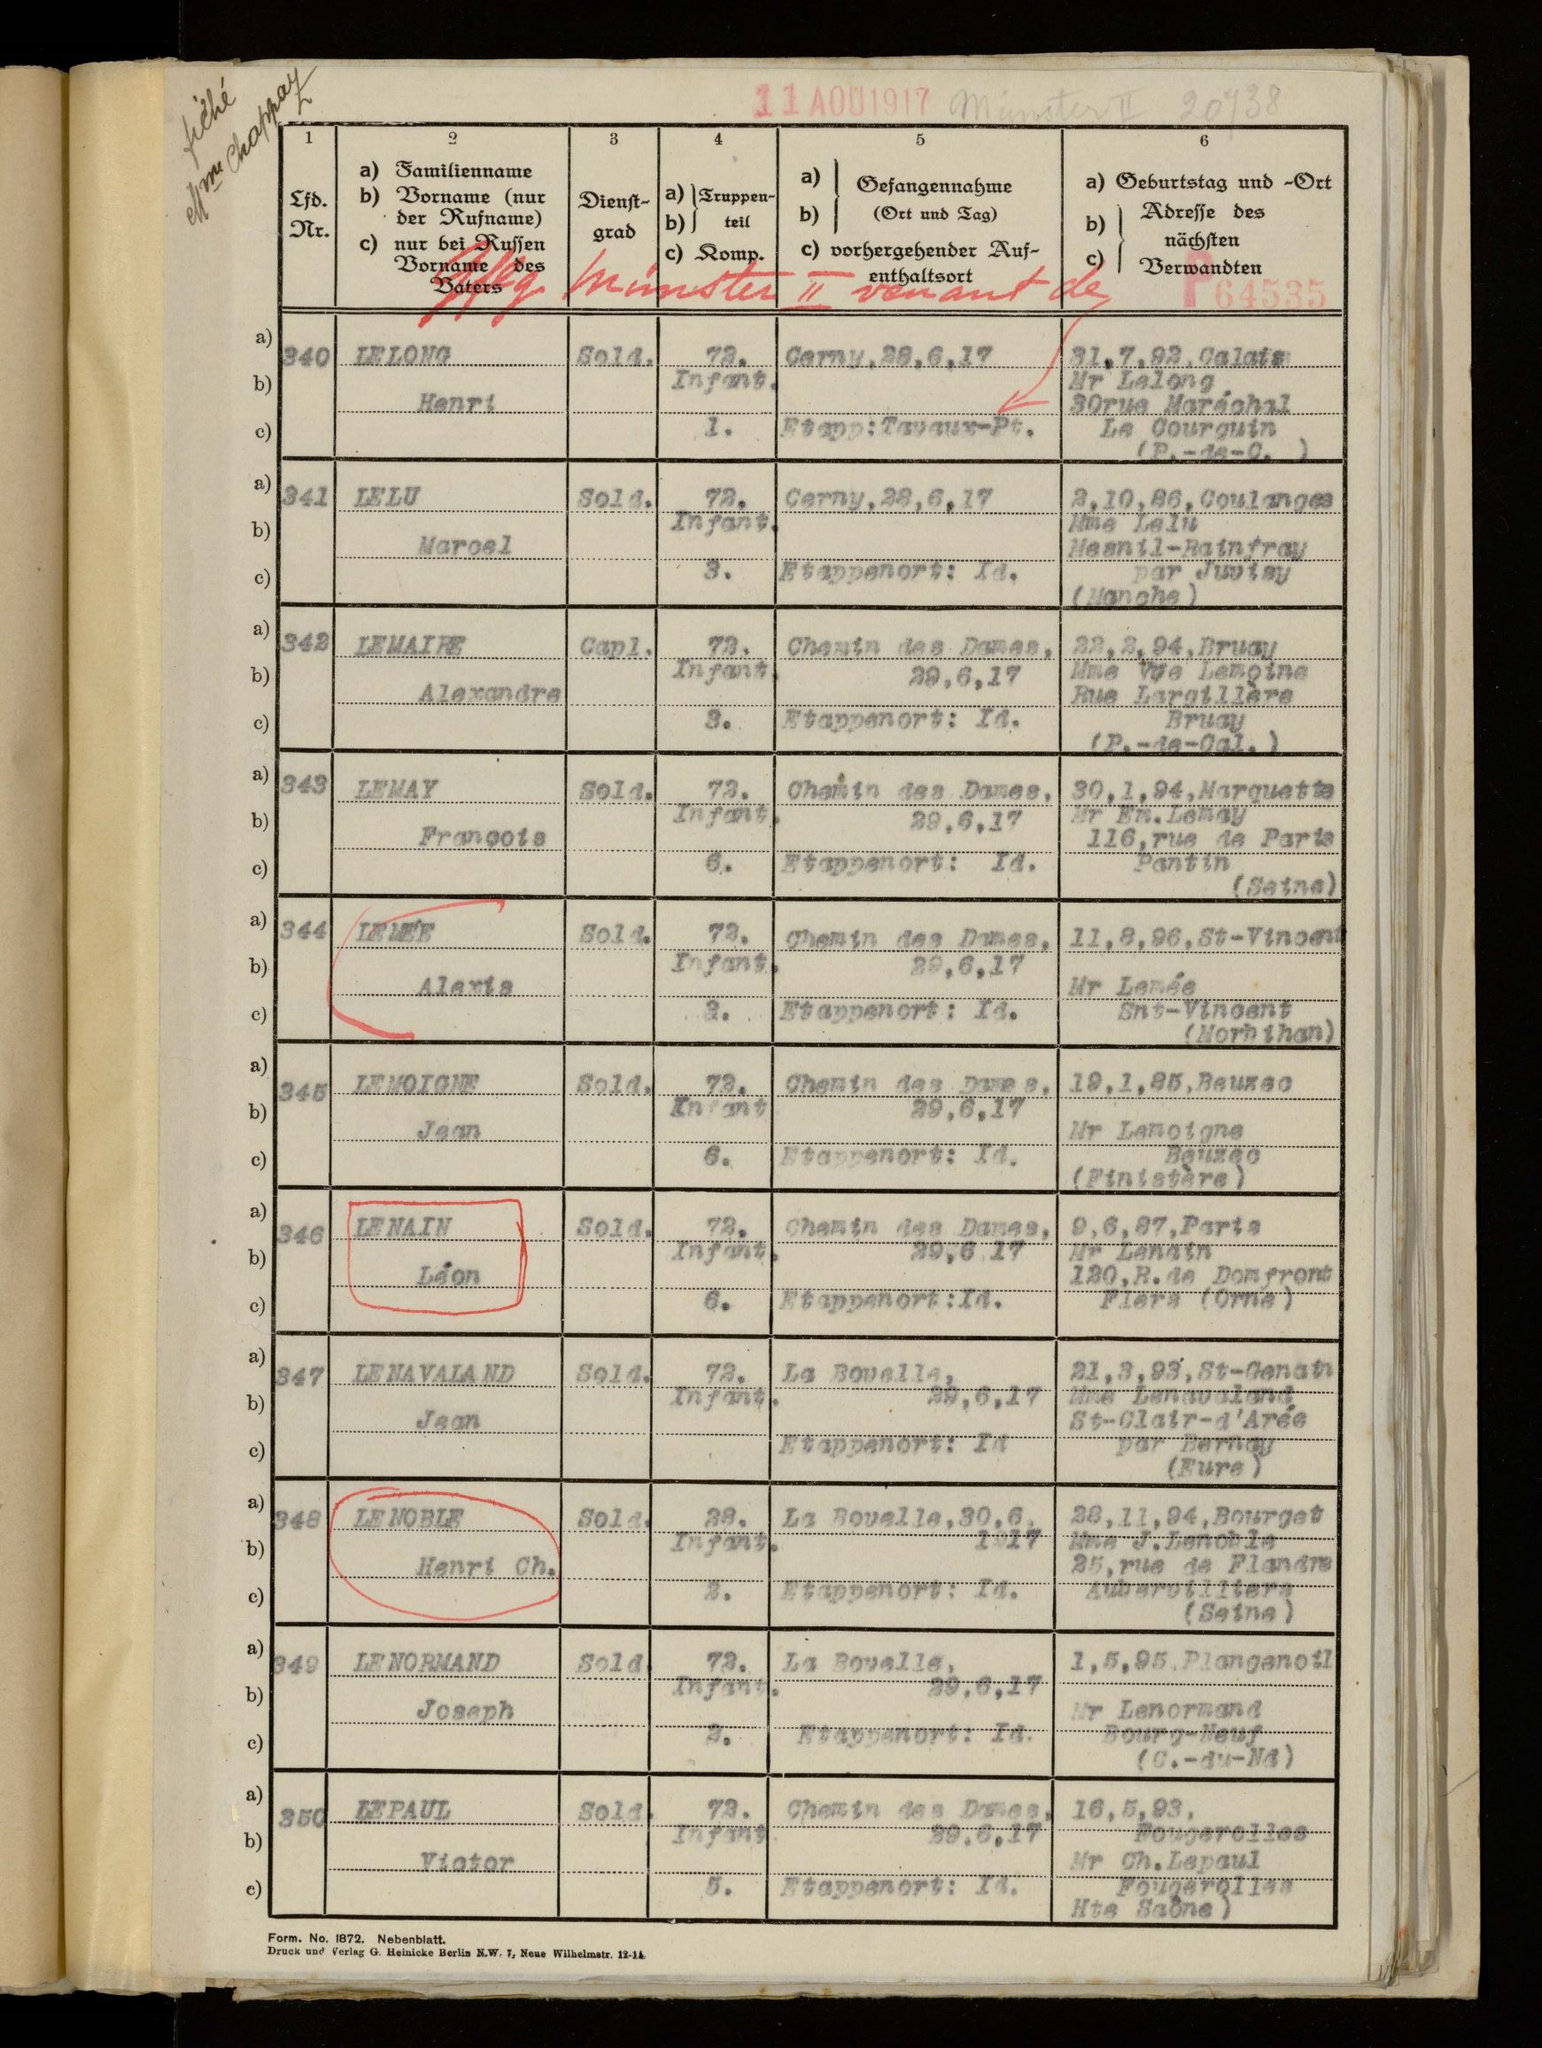 fiché
Mme Chappaz
11 AOU 1917 Münster II 20738
1 2 3 4 5 6
Lfd. Nr.
a) Familienname
b) Vorname (nur der Rufname)
c) nur bei Russen Vorname des Vaters
Dienst-
grad
a) Truppen-
b) teil
c) Komp.
a) Gefangennahme
b) (Ort und Tag)
c) vorhergehender Auf-
enthaltsort
a) Geburtstag und -Ort
b) Adresse des
nächsten
c) Verwandten
Münster II venant de
P 64535
a) 340 LELONG Sold. 72. Cerny,28,6,17 31,7,92,Calais
b) Infant. Mr Lelong
Henri 30rue Maréchal
c) 1. Etapp:Tavaux-Pt. Le Courguin
(P.-de-C. )
a) 341 LELU Sold. 72. Cerny,28,6,17 2,10,86,Coulanges
b) Infant. Mme Lelu
Marcel Mesnil-Rainfray
c) 3. Etappenort: Id. par Juvisy
(Manche)
a) 342 LEMAIRE Capl. 72. Chemin des Dames, 22,2,94,Bruay
b) Infant. 29,6,17 Mme Vve Lemoine
Alexandre Rue Largillère
c) 3. Etappenort: Id. Bruay
(P.-de-Cal.)
a) 343 LEMAY Sold. 72. Chemin des Dames, 30,1,94,Marquette
b) Infant. 29,6,17 Mr Em.Lemay
François 116,rue de Paris
c) 6. Etappenort: Id. Pantin
(Seine)
a) 344 LEMÉE Sold. 72. Chemin des Dames, 11,8,96,St-Vincent
b) Infant. 29,6,17
Alexis Mr Lemée
c) 2. Etappenort: Id. Snt-Vincent
(Morbihan)
a) 345 LEMOIGNE Sold. 72. Chemin des Dames, 19,1,85,Beuzec
b) Infant 29,6,17
Jean Mr Lemoigne
c) 6. Etappenort: Id. Beuzec
(Finistère)
a) 346 LENAIN Sold. 72. Chemin des Dames, 9,6,87,Paris
b) Infant. 29,6,17 Mr Lenain
Léon 120,R.de Domfront
c) 6. Etappenort:Id. Flers (Orne)
a) 347 LENAVALAND Sold. 72. La Bovelle, 21,3,93,St-Genain
b) Infant. 29,6,17 Mme Lenavaland
Jean St-Clair-d'Arée
c) Etappenort: Id par Bernay
(Eure)
a) 348 LENOBLE Sold. 28. La Bovelle,30,6. 28,11,94,Bourget
b) Infant. 1917 Mme J.Lenoble
Henri Ch. 25,rue de Flandre
c) 2. Etappenort: Id. Aubervilliers
(Seine)
a) 349 LENORMAND Sold. 72. La Bovelle, 1,5,95,Plangenoil
b) Infant. 29,6,17
Joseph Mr Lenormand
c) 2. Etappenort: Id. Bourg-Neuf
(C.-du-Nd)
a) 350 LEPAUL Sold. 72. Chemin des Dames, 16,5,93,
b) Infant 29,6,17 Fougerolles
Victor Mr Ch.Lepaul
c) 5. Etappenort: Id. Fougerolles
Hte Saône)
Form. No. 1872. Nebenblatt.
Druck und Verlag G. Heinicke Berlin N.W. 7, Neue Wilhelmstr. 12-14